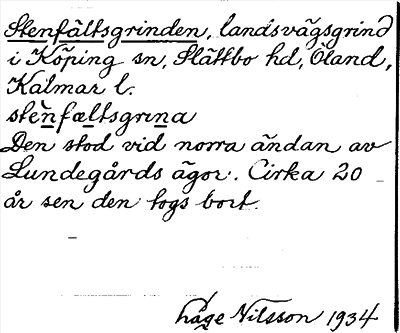 Stenfältsgrinden, landsvägsgrind
i Köping sn, Slättbo hd, Öland,
Kalmar l.
stèn̲fæl̲tsgrın̲a
Den stod vid norra ändan av
Lundegårds ägor. Cirka 20
år sen den togs bort.
Nilsson 1934